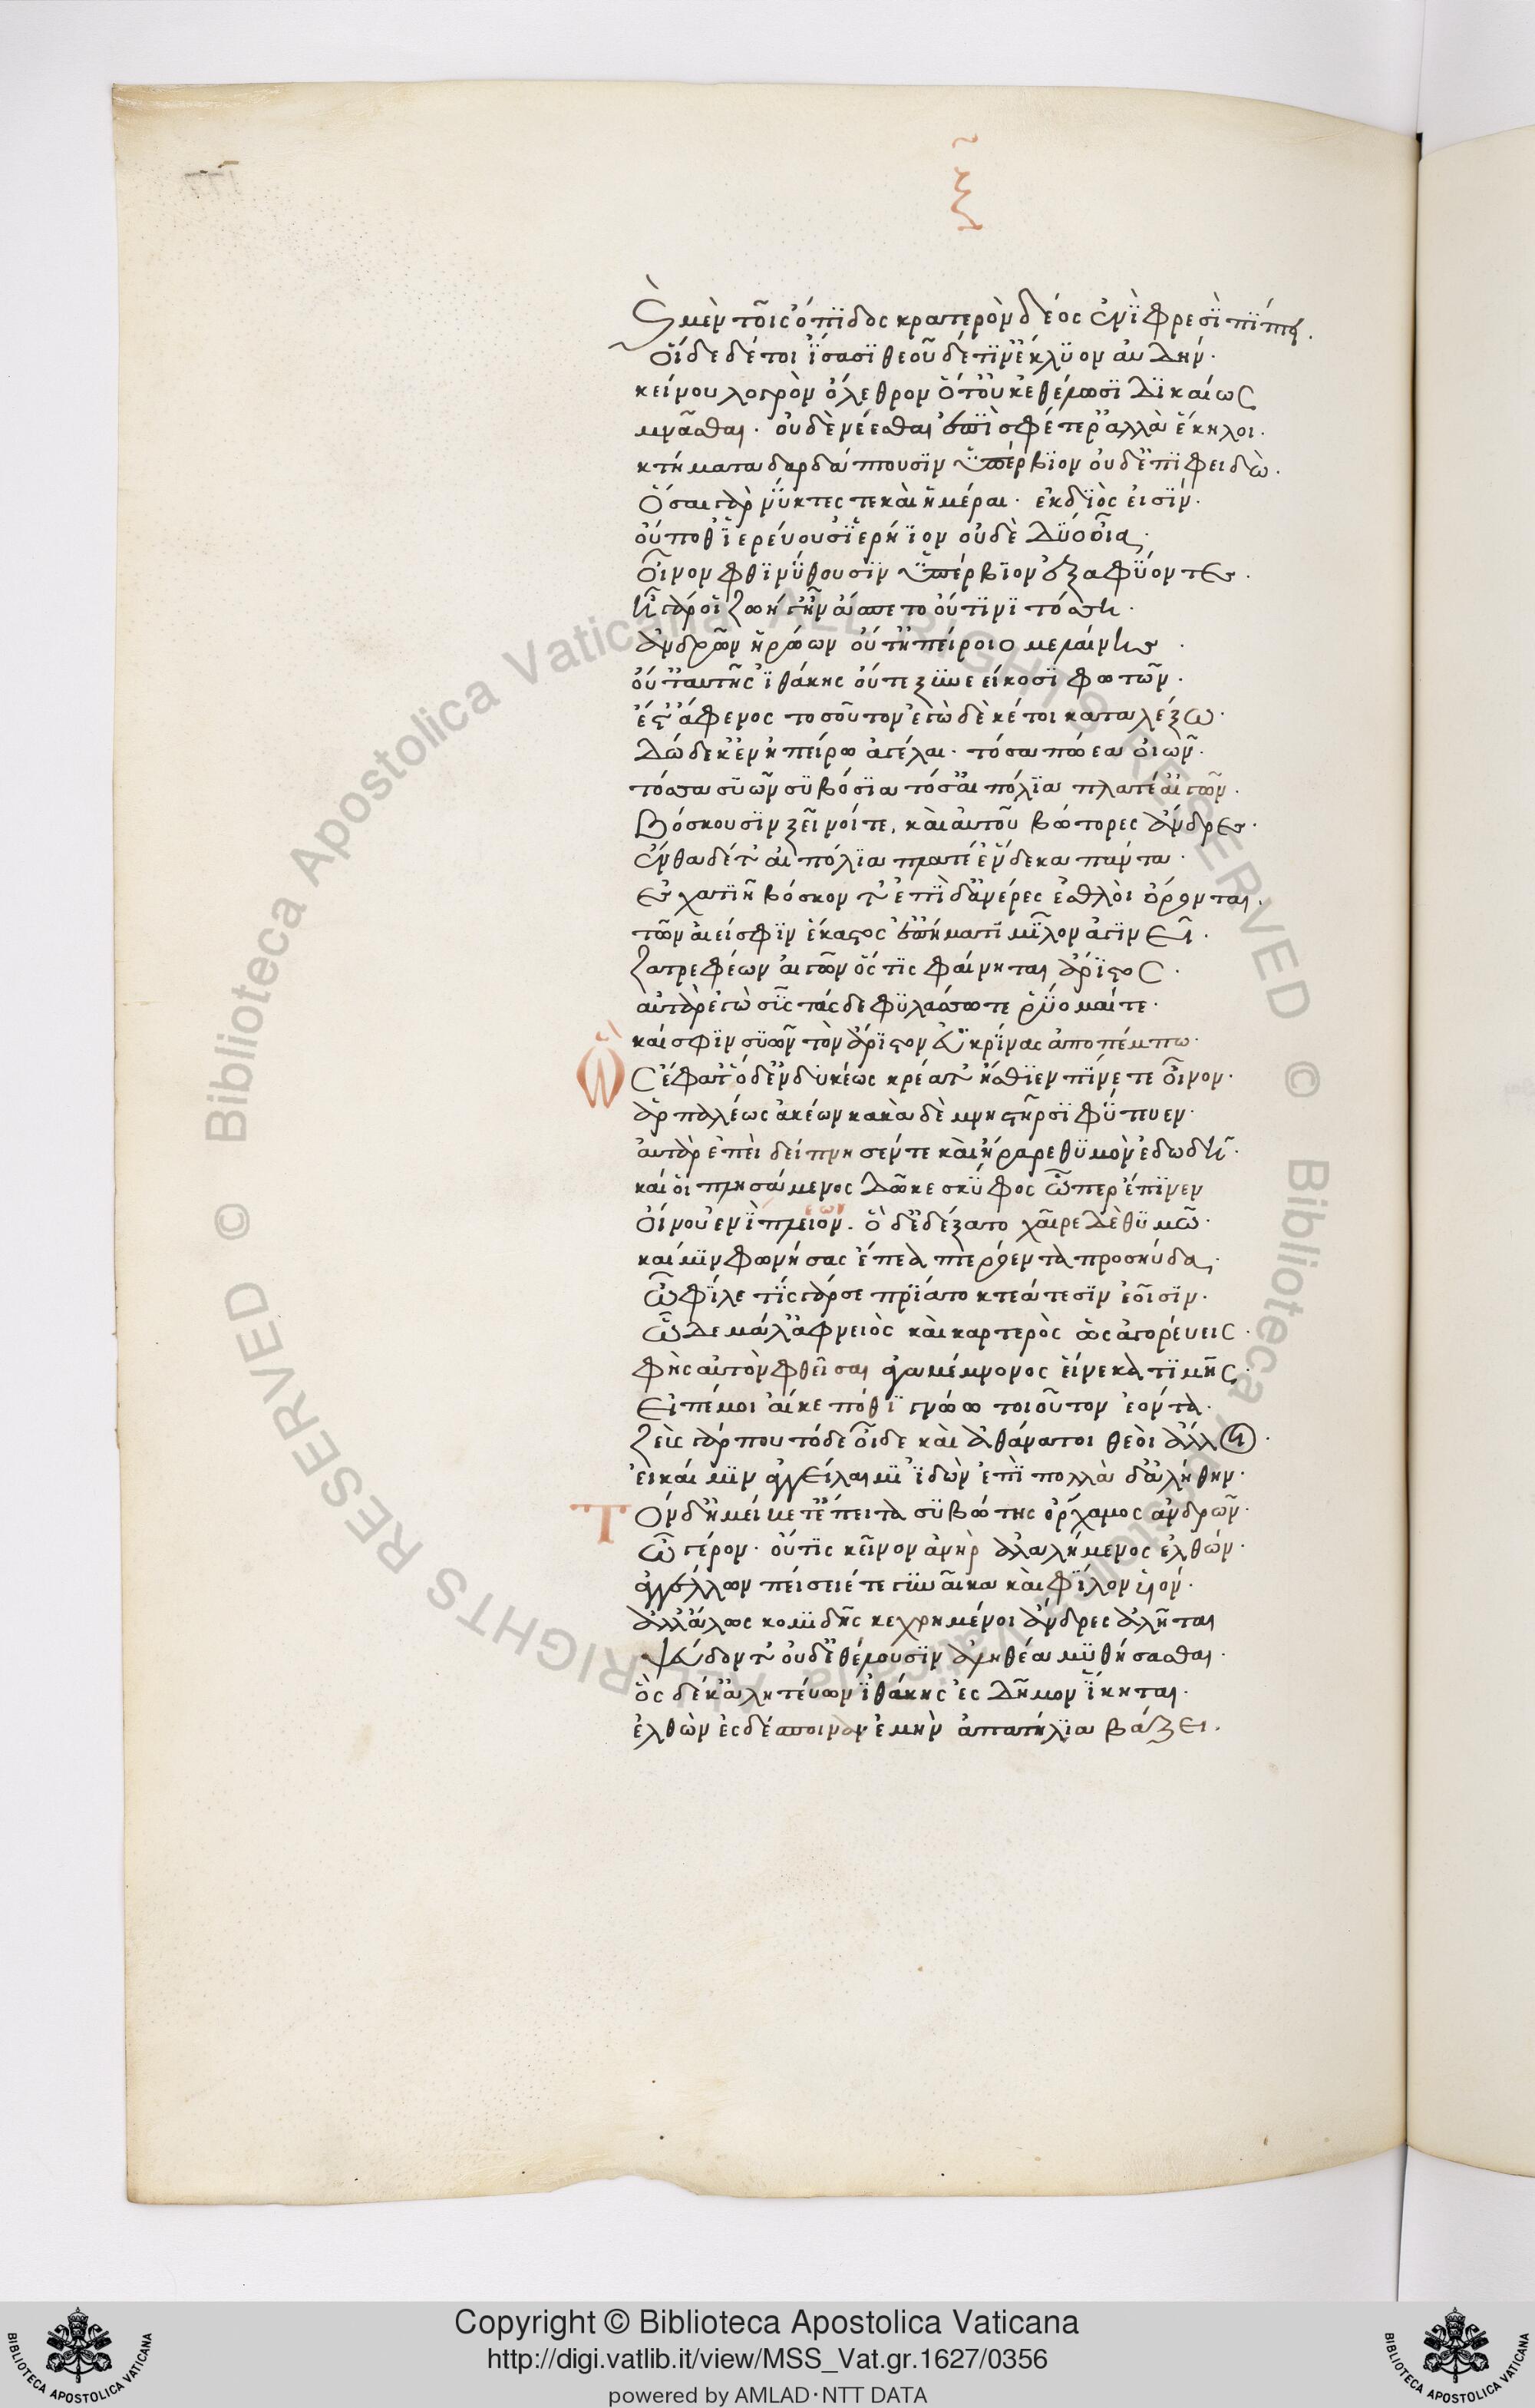 ξ
Καὶ μὲν τοῖς ὄπϊδος κρατερὸν δέος ἐνϊ φρεσϊ πϊπτει.
Οἵδε δέ τοι ἴσασϊ θεοῦ δέ τϊν ἔκλϋον αὐδήν·
κείνου λυγρὸν ὄλεθρον ὅτ' οὐκ ἐθέλωσϊ δϊκαίως
μνᾶσθαι· οὐδὲ νέεσθαι ἐπϊ σφέτερ' ἀλλὰ ἕκηλοι·
κτήματα δαρδάπτουσϊν ὑπέρβϊον οὐδ' ἔπϊ φειδώ.
Ὅσαι γὰρ νύκτες τε καὶ ἡμέραι· ἐκ δϊός εἰσϊν·
οὔποθ' ἱερεύουσ' ἱερήϊον οὐδὲ δύ' οἶα·
Οἶνον φθϊνύθουσϊν ὑπέρβϊον ἐξαφύοντες·
ἦ γάρ οἱ ζωή γ' ἦν ἄσπετος οὔτϊνϊ τόσση·
ἀνδρῶν ἡρώων οὔτ' ἠπείροιο μελαίνης·
οὔτ' αὐτῆς ἰθάκης οὔτε ξυνεείκοσϊ φωτῶν·
ἔστ' ἄφενος τοσοῦτον ἐγὼ δὲ κέ τοι καταλέξω·
Δώδεκ' ἐν ἠπείρω ἀγέλαι· τόσα πώεα οἰῶν·
τόσσα συῶν συβόσια τόσ' αἰπόλϊα πλατέ' αἰγῶν·
Βόσκουσϊν ξεῖνοί τε, καὶ αὐτοῦ βώτορες ἄνδρες·
ἔνθα δέ τ' αἰπόλϊα πλατέ' ἕνδεκα πάντα·
ἐσχατϊῆ βόσκοντ' ἐπϊ δ' ἀνέρες ἐσθλοὶ ὄρονται·
τῶν αἰεί σφϊν ἕκαστος ἐπ' ἤματϊ μῆλον ἀγϊνεῖ·
ζατρεφέων αἰγῶν ὅς τϊς φαίνηται ἄρϊστος·
αὐτὰρ ἐγὼ σῦς τάσδε φϋλάσσω τε ῥύομαί τε·
καί σφϊν συῶν τὸν ἄρϊστον εὖ κρίνας ἀποπέμπω·
Ὣς ἔφαθ' ὁ δ' ἐνδυκέως κρέατ' ἤσθϊεν πῖνέ τε οἶνον·
ἁρπαλέως ἀκέων κακὰ δὲ μνηστῆρσϊ φύτευεν·
αὐτὰρ ἐπεὶ δείπνησέν τε καὶ ἤραρε θϋμὸν ἐδωδῆ·
καί οἱ πλησάμενος δῶκε σκύφος ὧπερ ἔπϊνεν
Οἴνου ἐνϊπλειον· ὃ δ' ἐδέξατο χαῖρε δὲ θϋμῶ·
καί μϊν φωνήσας ἔπεα πτερόεντα προσηύδα·
Ὦ φίλε τίς γάρ σε πρίατο κτεάτεσϊν ἑοῖσϊν·
Ὧδε μάλ' ἀφνειὸς καὶ καρτερὸς ὡς ἀγορεύεις·
φῂς αὐτὸν φθεῖσαι ἀγαμέμνονος εἵνεκα τϊμῆς·
Εἰπέ μοι αἴ κε πόθϊ γνώω τοιοῦτον ἐόντα·
Ζεὺς γάρ που τόδε οἶδε καὶ ἀθάνατοι θεοὶ ἄλλοι·
εἰ καί μϊν ἀγγείλαιμϊ ἰδὼν ἐπὶ πολλὰ δ' ἀλήθην·
Τὸν δ' ἠμείβετ' ἔπειτα σϋβώτης ὄρχαμος ἀνδρῶν·
Ὦ γέρον· οὔτϊς κεῖνον ἀνὴρ ἀλαλήμενος ἐλθών·
ἀγγέλλων πείσειέ τε γυναῖκα καὶ φίλον υἱόν·
ἀλλ' ἄλλως κομϊδῆς κεχρημένοι ἄνδρες ἀλῆται
ψεύδοντ' οὐδ' ἐθέλουσϊν ἀληθέα μϋθήσασθαι·
ὃς δέ κ' ἀλητεύων ἰθάκης ἐς δῆμον ἵκηται·
ἐλθὼν ἐς δέσποιναν ἐμὴν ἀπατήλϊα βάζει·
Copyright © Biblioteca Apostolica Vaticana
http://digi.vatlib.it/view/MSS_Vat.gr.1627/0356
powered by AMLAD·NTT DATA